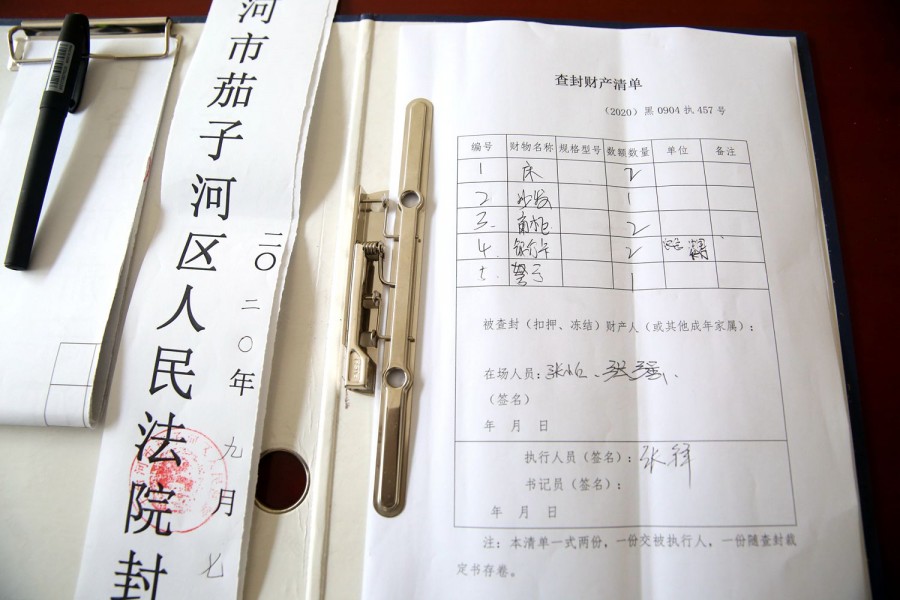 河市茄子河区人民法院封
二〇二〇年九月七
查封财产清单
（2020）黑 0904 执 457 号
编号 财物名称 规格型号 数额数量 单位 备注
1 床 2
2 沙发 1
3. 2
4. 银行卡 2
1
被查封（扣押、冻结）财产人（或其他成年家属）：
在场人员：
（签名）
年 月 日
执行人员（签名）：
书记员（签名）：
年 月 日
注：本清单一式两份，一份交被执行人，一份随查封裁
定书存卷。